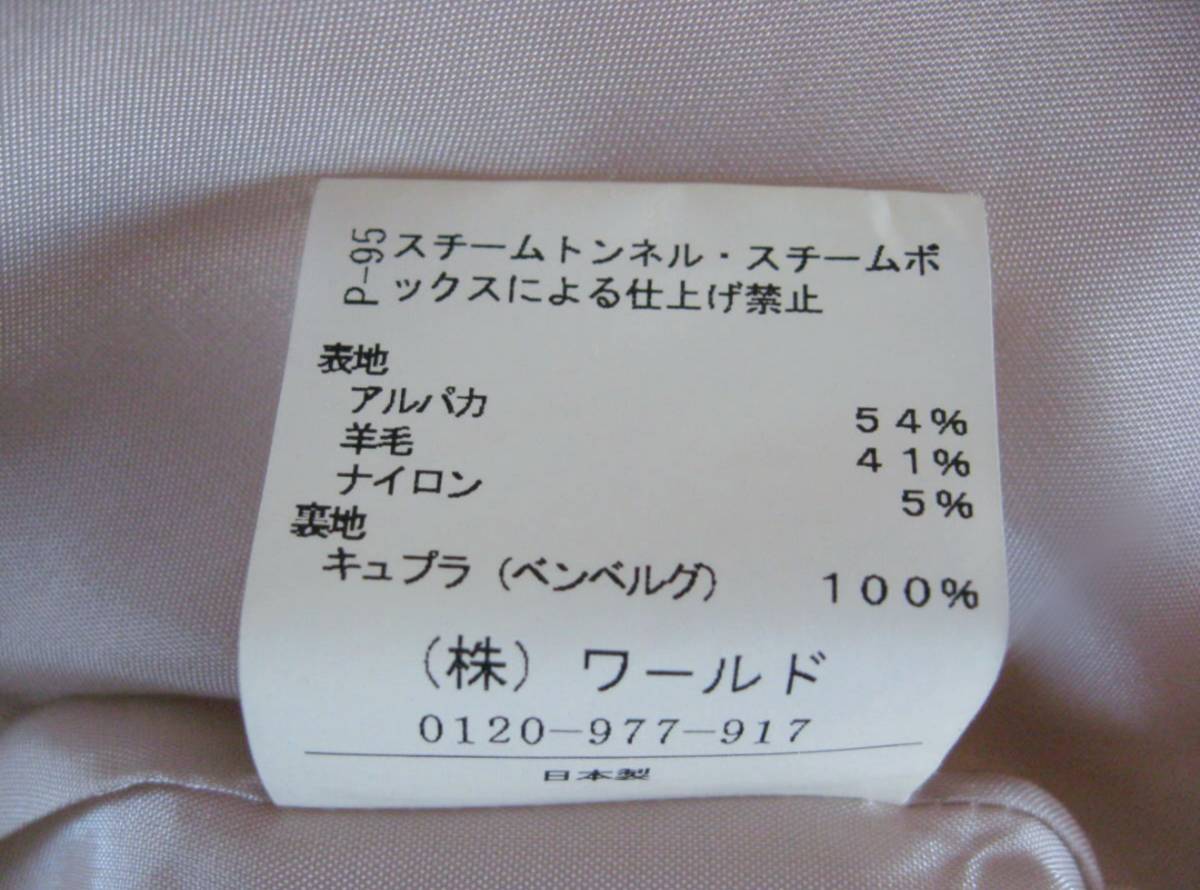 P-95
スチームトンネル・スチームボ
ックスによる仕上げ禁止
表地
アルパカ 54%
羊毛 41%
ナイロン 5%
裏地
キュプラ (ベンベルグ) 100%
(株) ワールド
0120-977-917
日本製